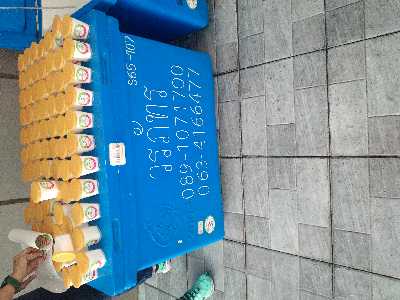 S65-107
วรภัทร
089-1071790
063-4166477